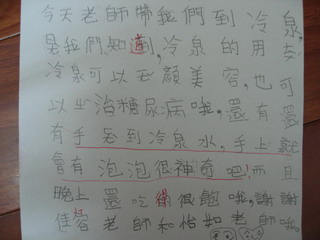 今天老師帶我們到冷泉,
是我們知道到,冷泉的用女
冷泉可以去顏美容,也可
以上治糖尿病哦。還有還
有手丟到冷泉水,手上就
會有泡泡很神奇吧!而且
晚上還吃得很飽哦,謝謝
佳蓉老師和怡如老師哦。